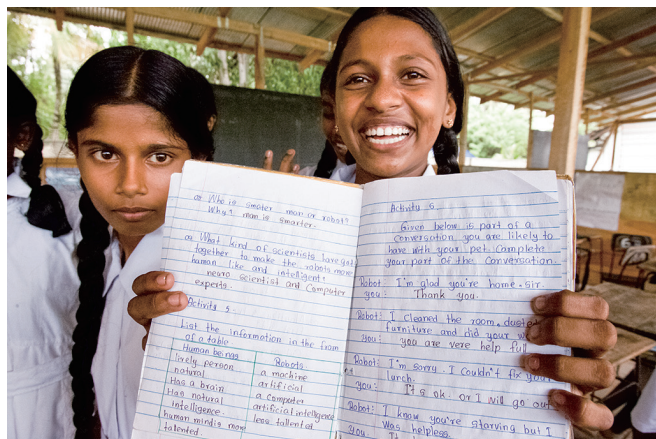 Who is smater man or robot?
Why? man is smarter.
What kind of scientists have got
together to make the robots more
human like and intelligent?
neuro scientist and computer
experts.
Activity 5.
List the information in the fram
of a table
Human beings Robots
lively person a machine
natural artificial
Has a brain a computer
Has natural artificial intelligence
intelligence. less tallented
human mind is more
talented
Activity 6
Given below is part of a
Conversation you are likely to
have with your pet. Complete
your part of the Conversation
Robot: I'm glad you're home. sir.
you: Thank you.
Robot: I cleaned the room. dusted
furniture and did your
you: you are vere help full
Robot: I'm sorry. I couldn't fix your
lunch.
you: It's ok. or I will go out
Robot: I know you're starving but I
was helpless.
you: